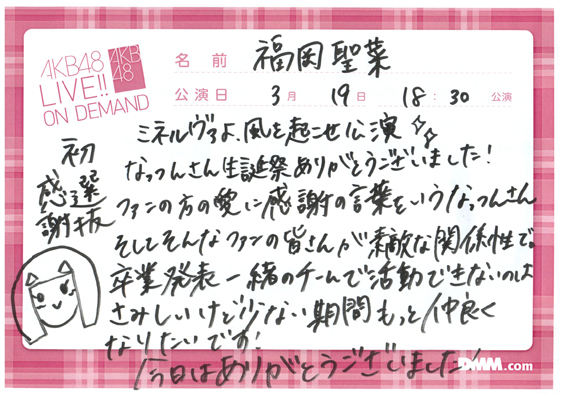 AKB48
LIVE!!
ON DEMAND
AKB
48
名前 福岡聖菜
公演日 3月 19日 18:30 公演
ミネルヴァよ、風を起こせ公演
なっつんさん生誕祭ありがとうございました!
ファンの方の愛に感謝の言葉をいうなっつんさん
そしてそんなファンの皆さんが素敵な関係性で。
卒業発表一緒のチームで活動できないのは
さみしいけど少ない期間もっと仲良く
なりたいです!
今日はありがとうございました!
初選抜
感謝
DMM.com